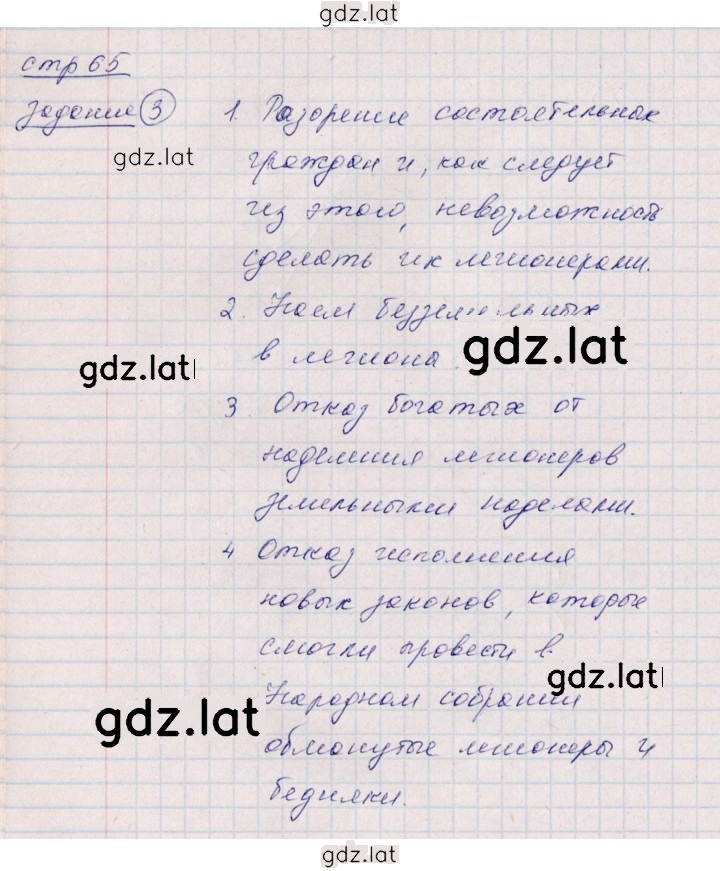 gdz.lat
стр 65
Задание 3 1. Разорение состоятельных
gdz.lat
граждан и, как следует
из этого, невозможность
сделать их легионерами.
2. Наем безземельных
в легиона
gdz.lat
gdz.lat
3. Отказ богатых от
наделения легионеров
земельными наделами.
4 Отказ исполнения
новых законов, которые
смогли провести в
gdz.lat
Народном собрании
gdz.lat
обманутые легионеры и
бедняки.
gdz.lat